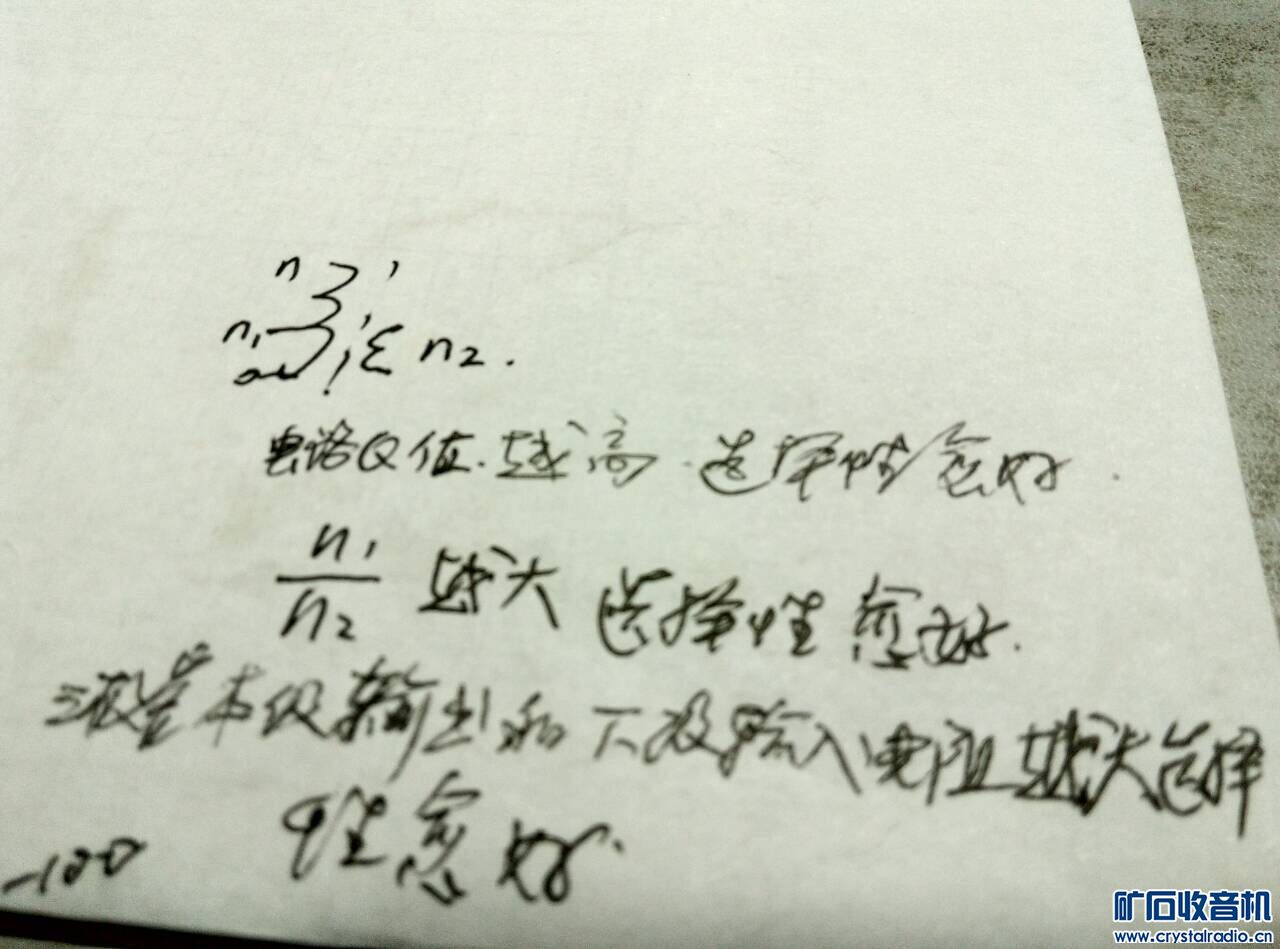 n
n₁
n₂.
电路Q值.越高.选择性愈好.
n₁
n₂
越大 选择性愈好.
三极管本级输出和下级输入电阻越大选择
性愈好.
矿石收音机
www.crystalradio.cn